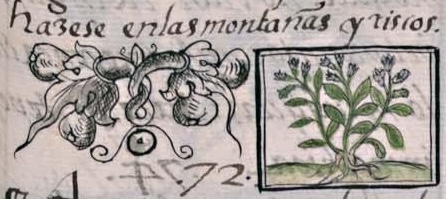 hazese en las montañas y riscos.
.4772.